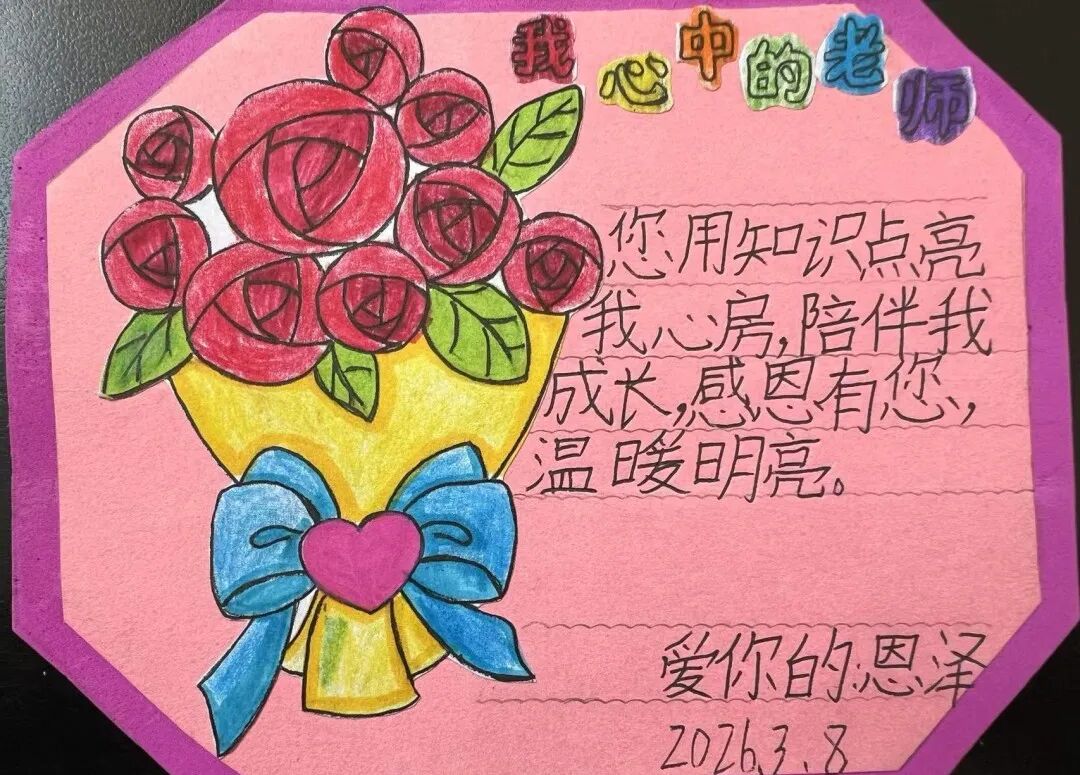 我心中的老师
您用知识点亮
我心房,陪伴我
成长,感恩有您,
温暖明亮。
爱你的恩泽
2026.3.8